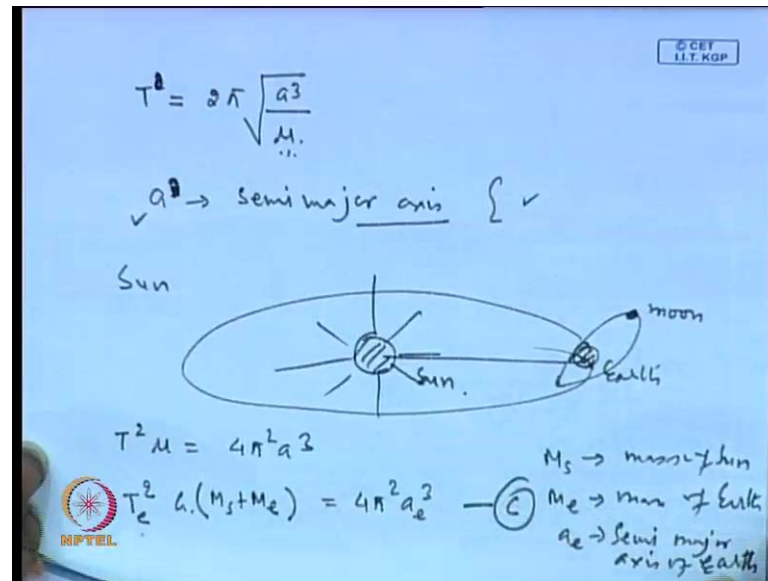 © CET
I.I.T. KGP
T = 2π √(a3/μ.)
a → semi major axis { ✓
Sun
moon
Sun.
Earth
T²μ = 4π²a3
Te² G.(Ms+Me) = 4π²ae³ — (C)
Ms → mass of Sun
Me → mass of Earth
ae → Semi major
axis of Earth
NPTEL